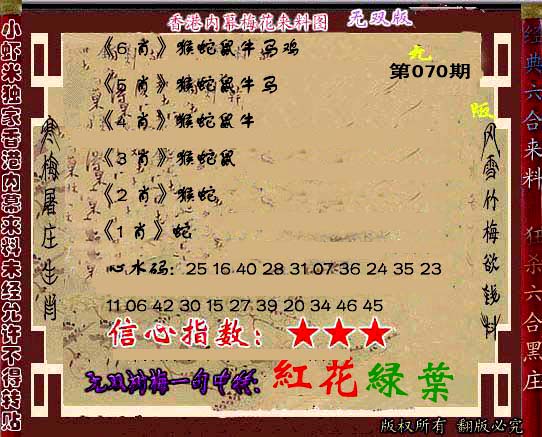 香港内幕梅花来料图 无双版
小虾米独家香港内幕来料未经允许不得转贴
经典六合来料 狂杀六合黑庄
寒梅屠庄生肖
第070期
《6肖》猴蛇鼠牛马鸡
《5肖》猴蛇鼠牛马
《4肖》猴蛇鼠牛
《3肖》猴蛇鼠
《2肖》猴蛇
《1肖》蛇
心水码：25 16 40 28 31 07 36 24 35 23
11 06 42 30 15 27 39 20 34 46 45
信心指数：★★★
紅花緑葉
版权所有 翻版必究